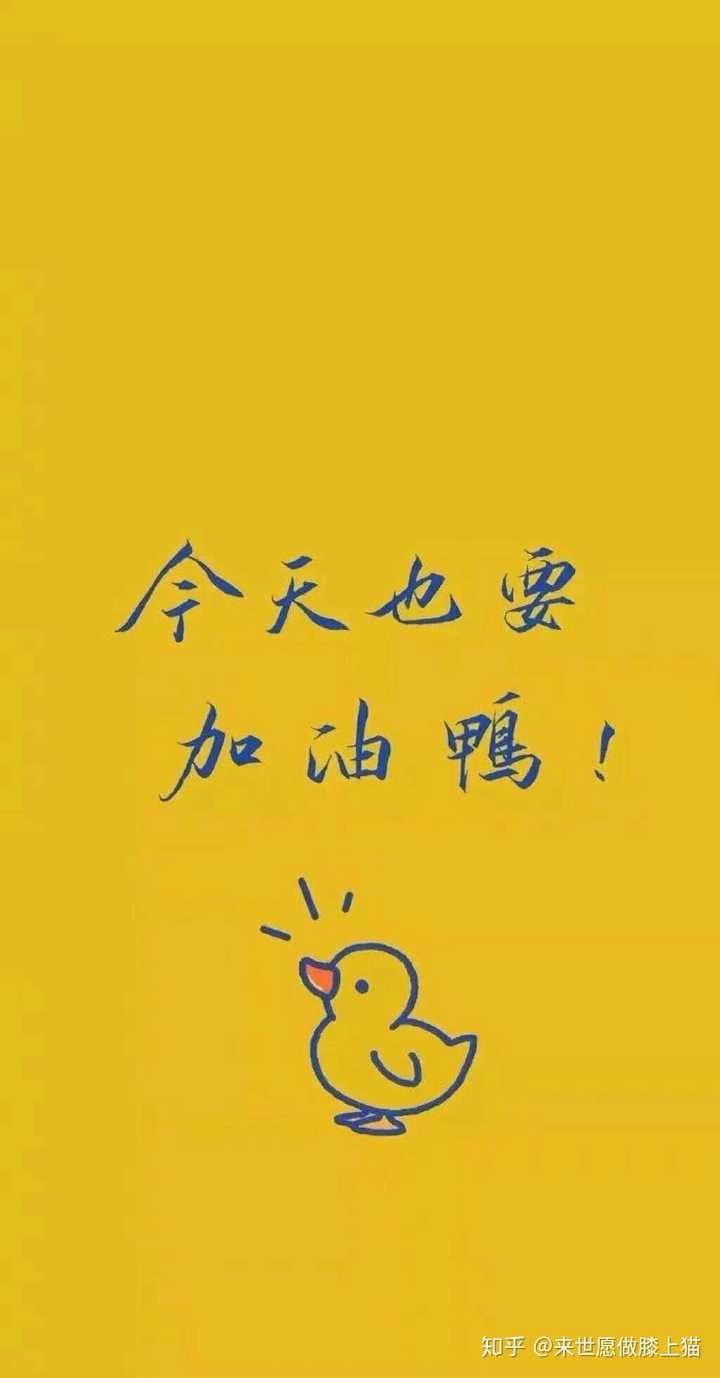 今天也要
加油鴨！
知乎 @来世愿做膝上猫